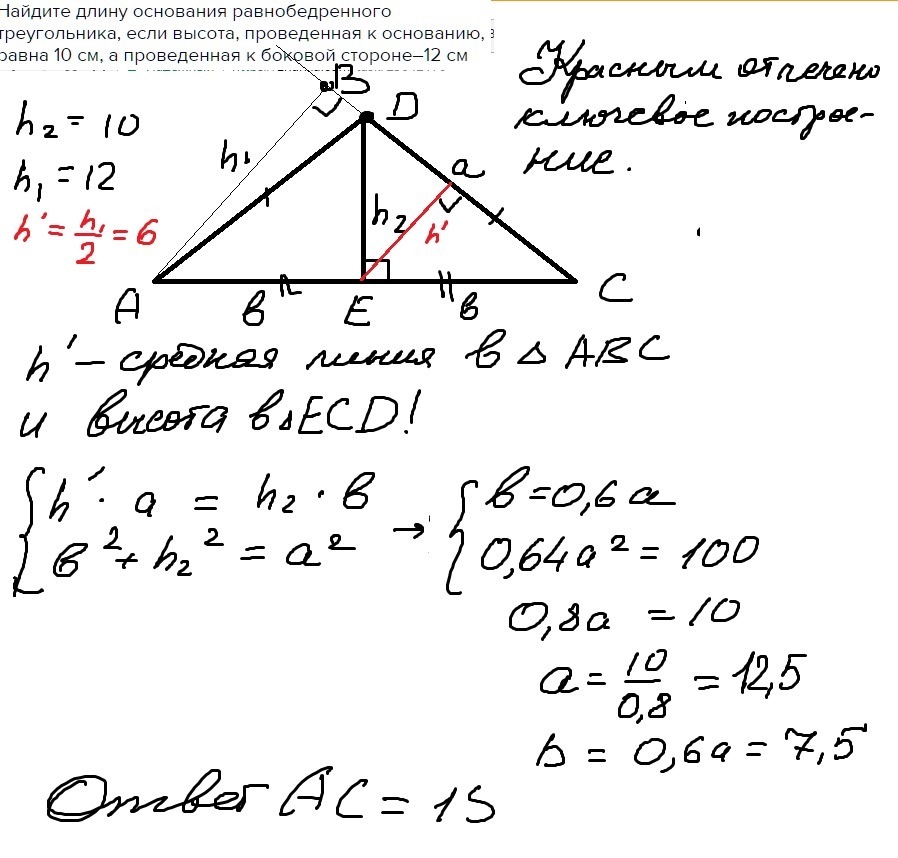 Найдите длину основания равнобедренного
треугольника, если высота, проведенная к основанию,
равна 10 см, а проведенная к боковой стороне–12 см
Красным отмечено
ключевое построе-
ние.
h₂ = 10
h₁ = 12
h' = h₁/2 = 6
B
D
h₁
a
h₂
h'
A
в
E
в
C
h' – средняя линия в △ ABC
и высота в △ECD!
{ h' · a = h₂ · в → { в = 0,6 a
в² + h₂² = a² 0,64a² = 100
0,8a = 10
a = 10/0,8 = 12,5
в = 0,6a = 7,5
Ответ AC = 15